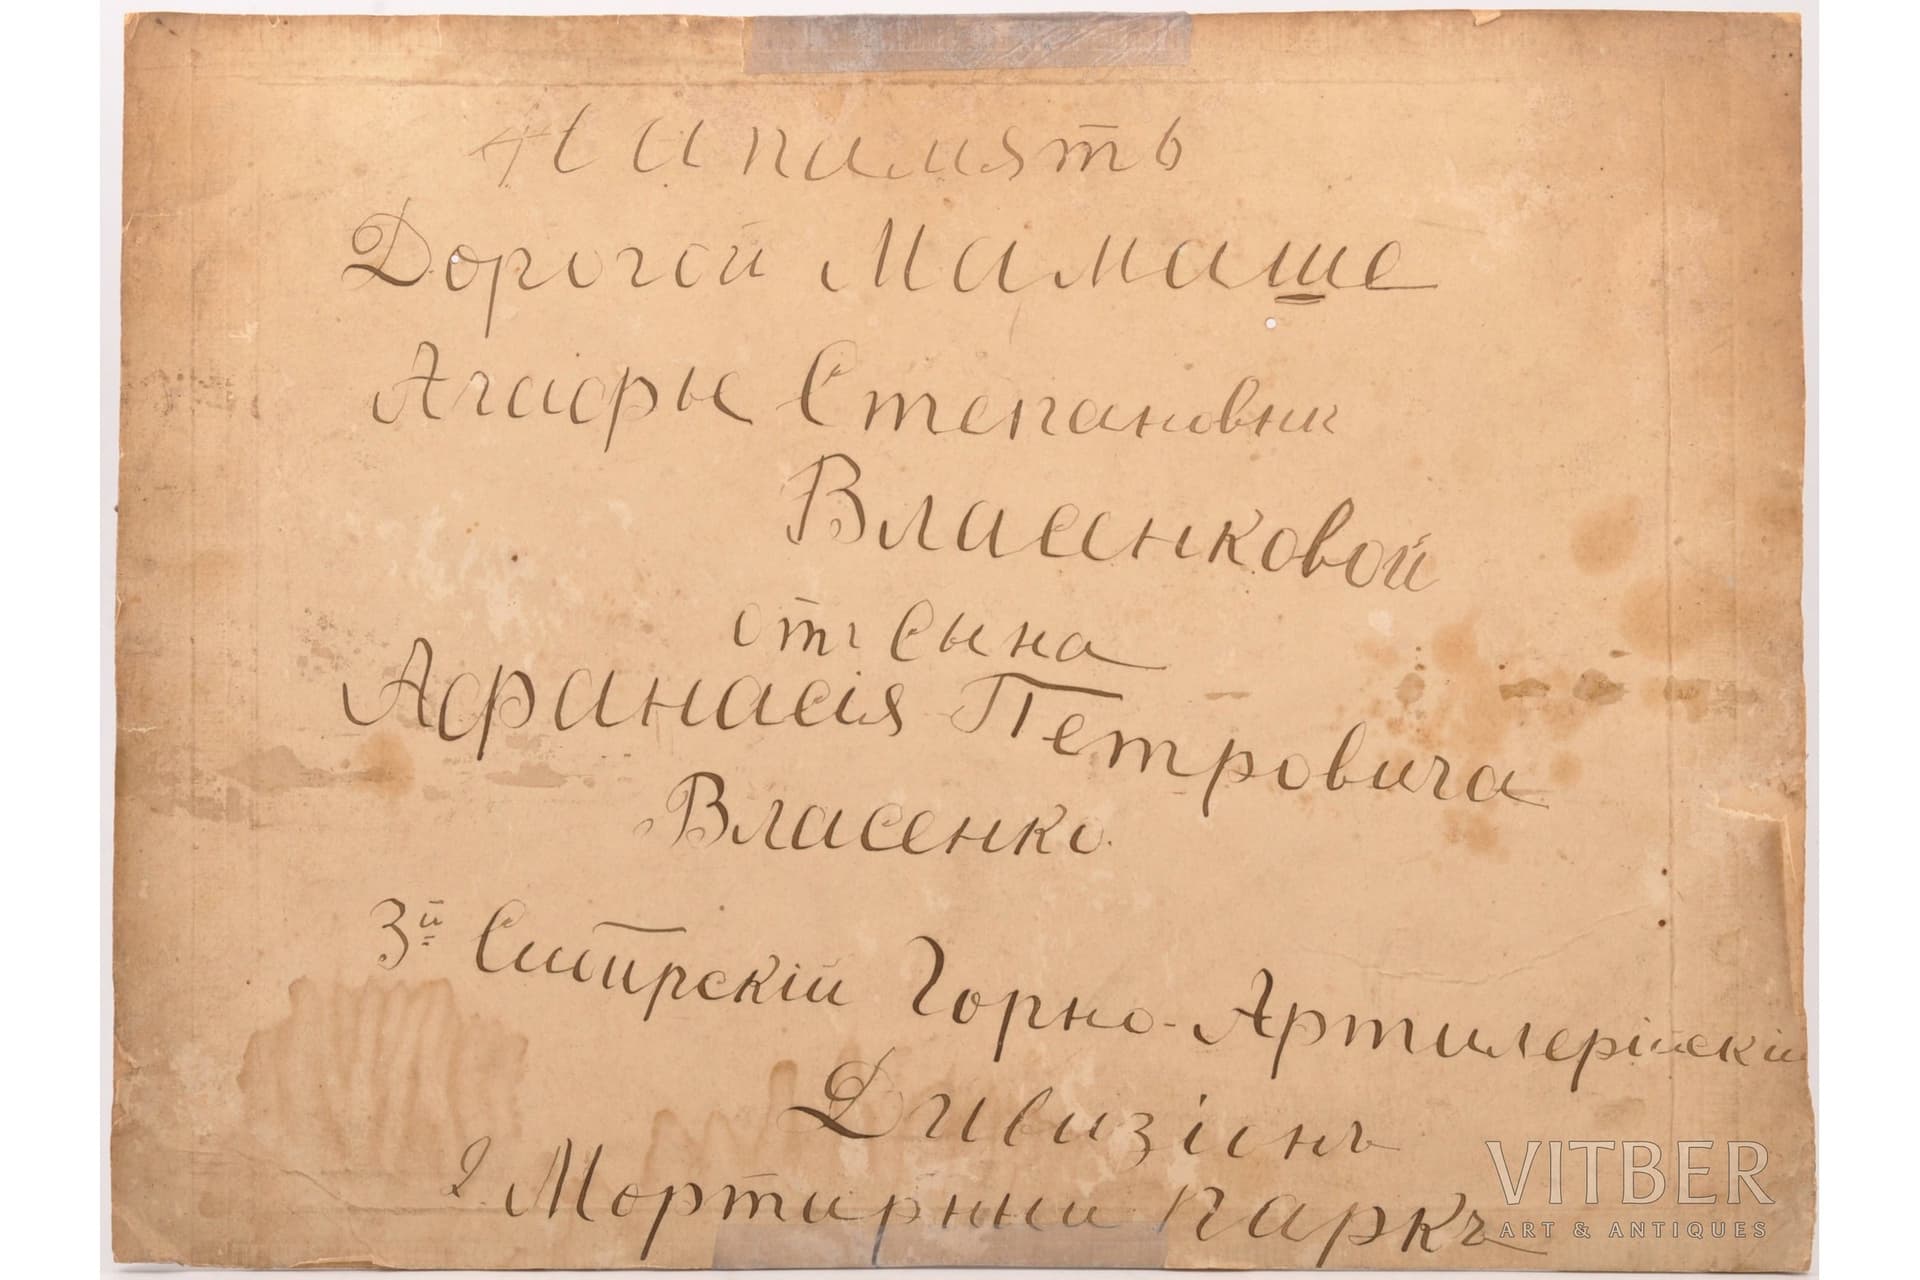 На память
Дорогой Мамаше
Агафье Степановни
Власенковой
отъ Сына
Афанасія Петровича
Власенко.
3й Сибирскій Горно-Артилерійскій
Дивизіонъ
2 Мортирный паркъ
VITBER
ART & ANTIQUES